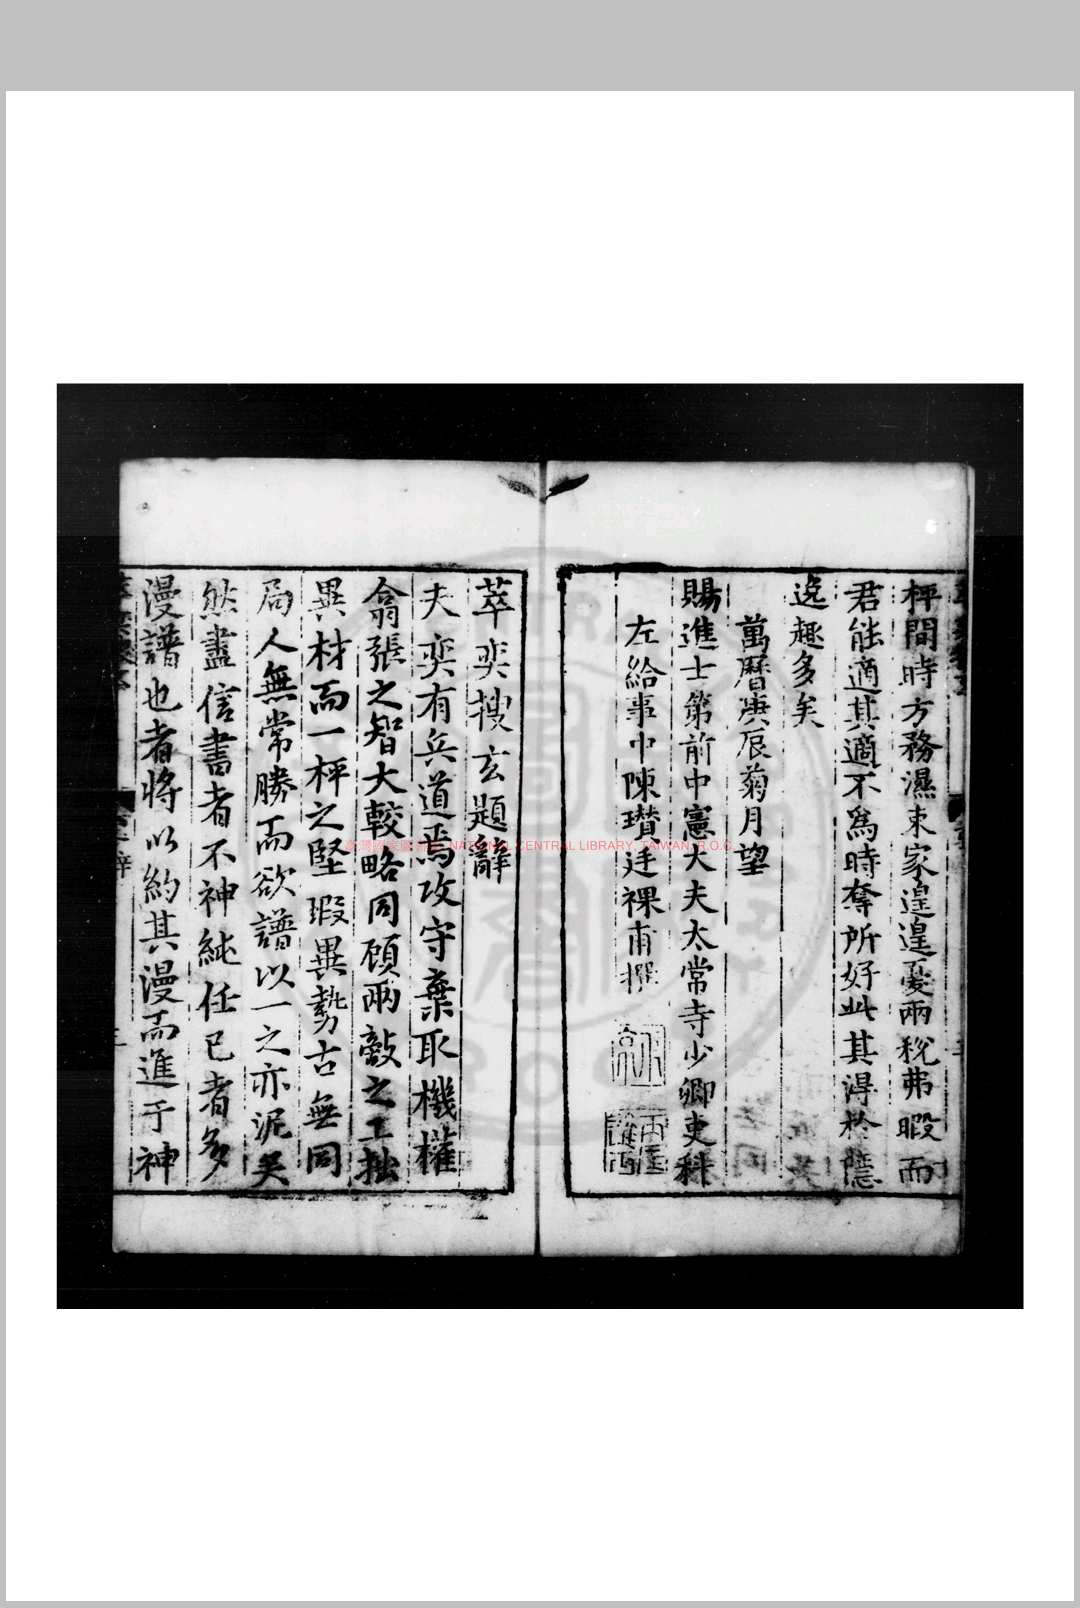 枰間時方務濕束家遑遑憂兩稅弗暇而
君能適其適不爲時奪所好此其得於隱
逸趣多矣
萬曆庚辰菊月望
賜進士第前中憲大夫太常寺少卿吏科
左給事中陳瓚廷祼甫撰
萃奕搜玄題辭
夫奕有兵道焉攻守棄取機權
翕張之智大較略同顧兩敵之工拙
異材而一枰之堅瑕異勢古無同
局人無常勝而欲譜以一之亦泥矣
然盡信書者不神純任已者多
漫譜也者將以約其漫而進于神
NATIONAL CENTRAL LIBRARY, TAIWAN, R.O.C.